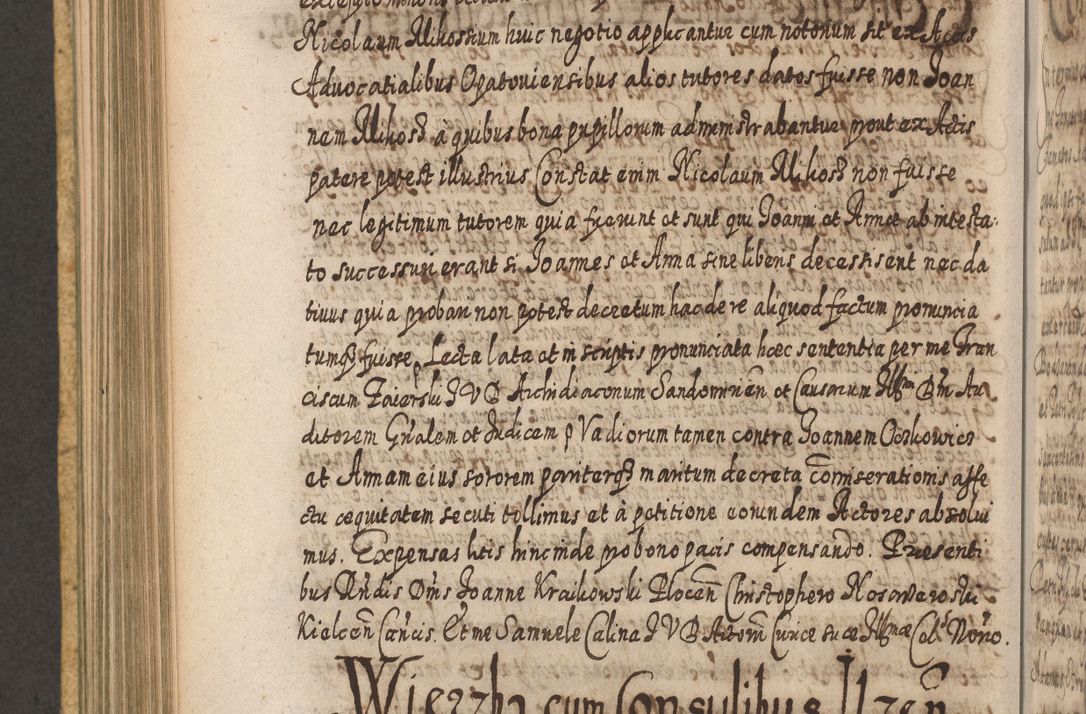 Nicolaum Mikossium huic negotio applicantur cum notorium sit ex Actis
Advocatialibus Opatoviensibus alios tutores datos fuisse non Joan
nem Mikosz à quibus bona pupillorum administrabantur prout ex Actis
patere potest illustrius Constat enim Nicolaum Mikosz non fuisse
nec legitimum tutorem quia fuerunt et sunt qui Joanni et Annæ ab intesta
to successuri erant si Joannes et Anna sine liberis decessissent nec da
tivus quia probari non potest decretum hac de re aliquod factum pronuncia
tumq3 fuisse. Lecta lata et in scriptis pronunciata hæc sententia per me Fran
ciscum Zaierski J V D Archidiaconum Sandomirien et Causarum Illmi Dni Au
ditorem Gnalem et Judicem p Vadiorum tamen contra Joannem Oczkowicz
et Annam eius sororem pariterq3 maritum decreta comiserationis affe
ctu æquitatem secuti tollimus et à petitione eorundem Actores absolvi
mus. Expensas litis hincinde pro bono pacis compensando. Præsenti
bus Rndis Dnis Joanne Kraikowski Plocen Christophero Nosarzewski
Kielcen Cancis. Et me Samuele Calina J V D Actorm Curiæ suæ Illmæ Cels Norio.
Wierzba cum Consulibus Ilzen